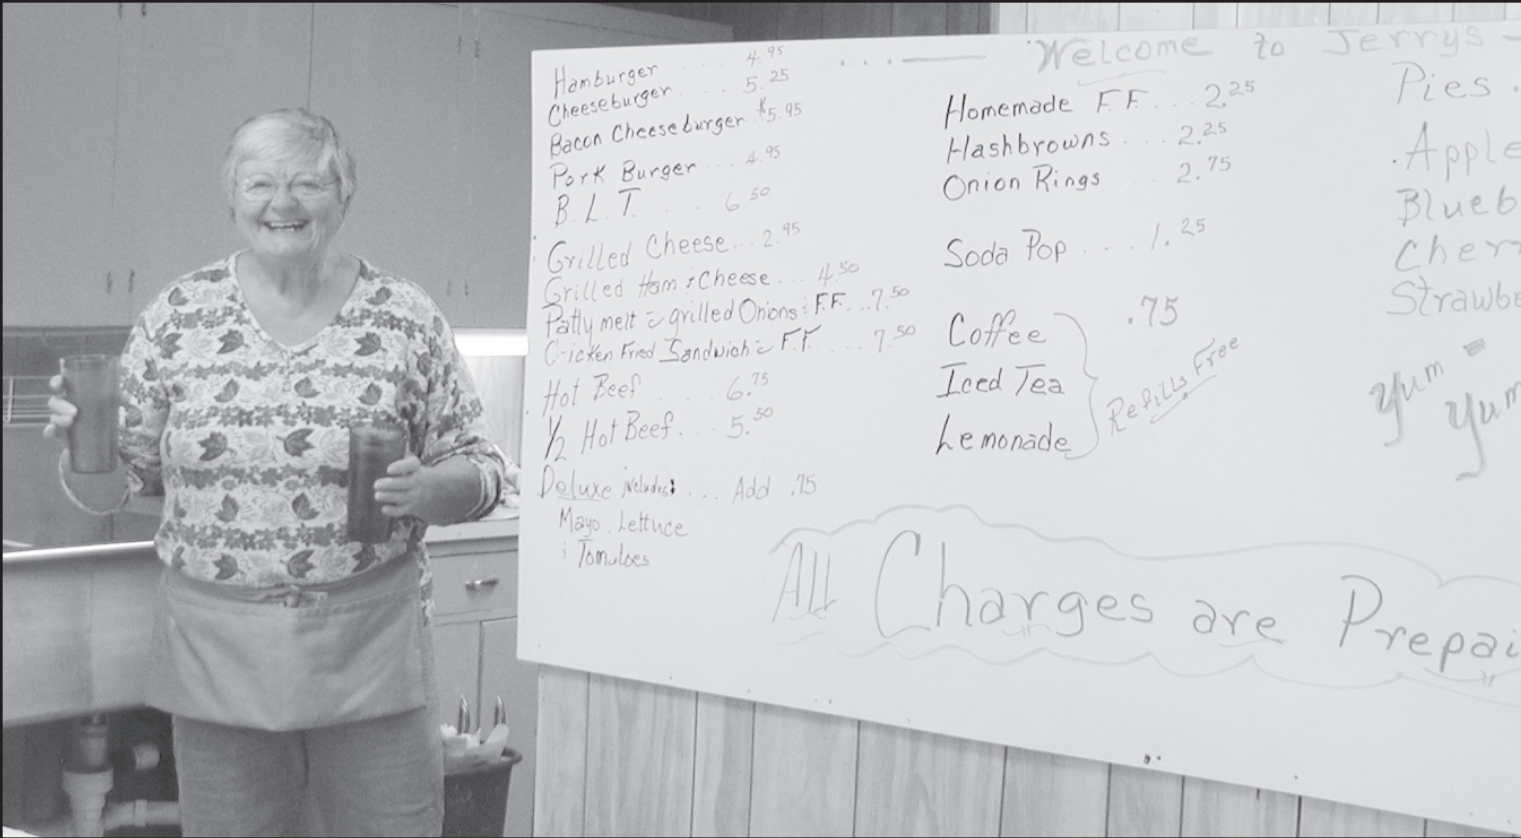 Hamburger .... 4.95
Cheeseburger .... 5.25
Bacon Cheeseburger $5.95
Pork Burger ... 4.95
B. L. T. .... 6.50
Grilled Cheese... 2.95
Grilled Ham & Cheese ... 4.50
Patty melt grilled Onions & F.F. ...7.50
Chicken Fried Sandwich F.F. .... 7.50
Hot Beef .... 6.75
1/2 Hot Beef... 5.50
Deluxe includes: ... Add .75
Mayo, Lettuce
& Tomatoes
Welcome to Jerrys -
Homemade F.F. ... 2.25
Hashbrowns ... 2.25
Onion Rings 2.75
Soda Pop .... 1.25
Coffee .75
Iced Tea
Lemonade
Refills Free
Pies .
. Apple
Blueb
Cherr
Strawbe
Yum
Yum
All Charges are Prepai